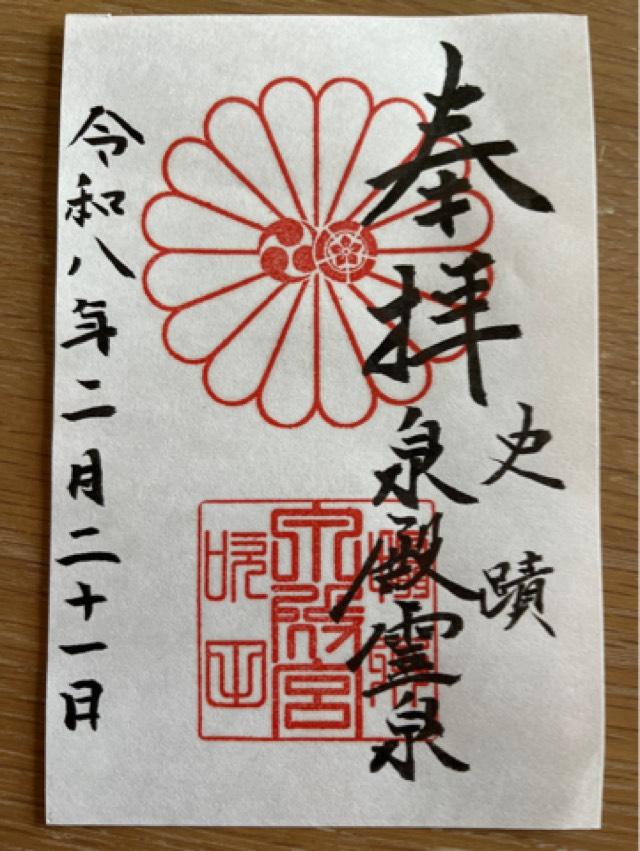 奉拝
史蹟
泉殿霊泉
令和八年二月二十一日
泉殿宮